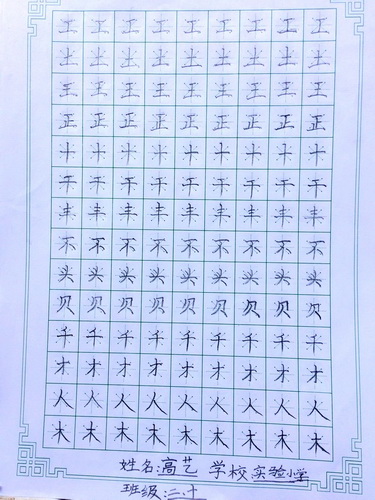 工 工 工 工 工 工 工 工 工
土 土 土 土 土 土 土 土 土
王 王 王 王 王 王 王 王 王
正 正 正 正 正 正 正 正 正
十 十 十 十 十 十 十 十 十
干 干 干 干 干 干 干 干 干
丰 丰 丰 丰 丰 丰 丰 丰 丰
不 不 不 不 不 不 不 不 不
头 头 头 头 头 头 头 头 头
贝 贝 贝 贝 贝 贝 贝 贝 贝
千 千 千 千 千 千 千 千 千
才 才 才 才 才 才 才 才 才
人 人 人 人 人 人 人 人 人
木 木 木 木 木 木 木 木 木
姓名:高艺 学校:实验小学
班级:二.十